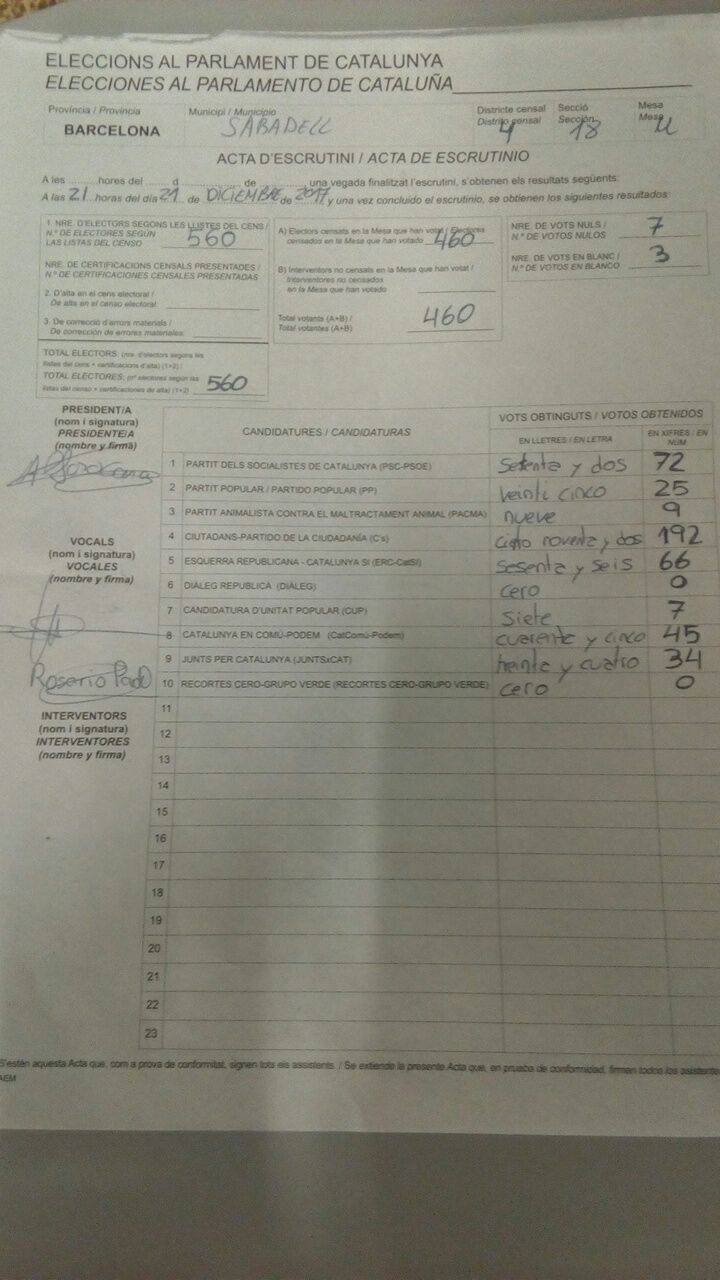 ELECCIONS AL PARLAMENT DE CATALUNYA
ELECCIONES AL PARLAMENTO DE CATALUÑA
Província / Provincia
BARCELONA
Municipi / Municipio
SABADELL
Districte censal
Distrito censal
4
Secció
Sección
18
Mesa
Mesa
U
ACTA D'ESCRUTINI / ACTA DE ESCRUTINIO
A les ........ hores del ...... d ................ de ............ una vegada finalitzat l'escrutini, s'obtenen els resultats següents:
A las 21 horas del día 21 de DICIEMBRE de 2017 y una vez concluido el escrutinio, se obtienen los siguientes resultados:
1. NRE. D'ELECTORS SEGONS LES LLISTES DEL CENS /
N.º DE ELECTORES SEGÚN
LAS LISTAS DEL CENSO
560
NRE. DE CERTIFICACIONS CENSALS PRESENTADES /
N.º DE CERTIFICACIONES CENSALES PRESENTADAS
2. D'alta en el cens electoral /
De alta en el censo electoral:
3. De correcció d'errors materials /
De corrección de errores materiales:
TOTAL ELECTORS: (nre. d'electors segons les
llistes del cens + certificacions d'alta) (1+2) /
TOTAL ELECTORES: (nº electores según las
listas del censo + certificaciones de alta) (1+2)
560
A) Electors censats en la Mesa que han votat / Electores
censados en la Mesa que han votado
460
B) Interventors no censats en la Mesa que han votat /
Interventores no censados
en la Mesa que han votado
Total votants (A+B) /
Total votantes (A+B)
460
NRE. DE VOTS NULS /
N.º DE VOTOS NULOS
7
NRE. DE VOTS EN BLANC /
N.º DE VOTOS EN BLANCO
3
PRESIDENT/A
(nom i signatura)
PRESIDENTE/A
(nombre y firma)
VOCALS
(nom i signatura)
VOCALES
(nombre y firma)
Rosario
INTERVENTORS
(nom i signatura)
INTERVENTORES
(nombre y firma)
CANDIDATURES / CANDIDATURAS
VOTS OBTINGUTS / VOTOS OBTENIDOS
EN LLETRES / EN LETRA
EN XIFRES / EN NÚM
1 PARTIT DELS SOCIALISTES DE CATALUNYA (PSC-PSOE) Setenta y dos 72
2 PARTIT POPULAR / PARTIDO POPULAR (PP) veinti cinco 25
3 PARTIT ANIMALISTA CONTRA EL MALTRACTAMENT ANIMAL (PACMA) nueve 9
4 CIUTADANS-PARTIDO DE LA CIUDADANÍA (C's) ciento noventa y dos 192
5 ESQUERRA REPUBLICANA - CATALUNYA SÍ (ERC-CatSí) Sesenta y seis 66
6 DIÀLEG REPUBLICÀ (DIÀLEG) cero 0
7 CANDIDATURA D'UNITAT POPULAR (CUP) siete 7
8 CATALUNYA EN COMÚ-PODEM (CatComú-Podem) cuarenta y cinco 45
9 JUNTS PER CATALUNYA (JUNTSxCAT) treinta y cuatro 34
10 RECORTES CERO-GRUPO VERDE (RECORTES CERO-GRUPO VERDE) cero 0
11
12
13
14
15
16
17
18
19
20
21
22
23
S'estén aquesta Acta que, com a prova de conformitat, signen tots els assistents. / Se extiende la presente Acta que, en prueba de conformidad, firman todos los asistente
AEM